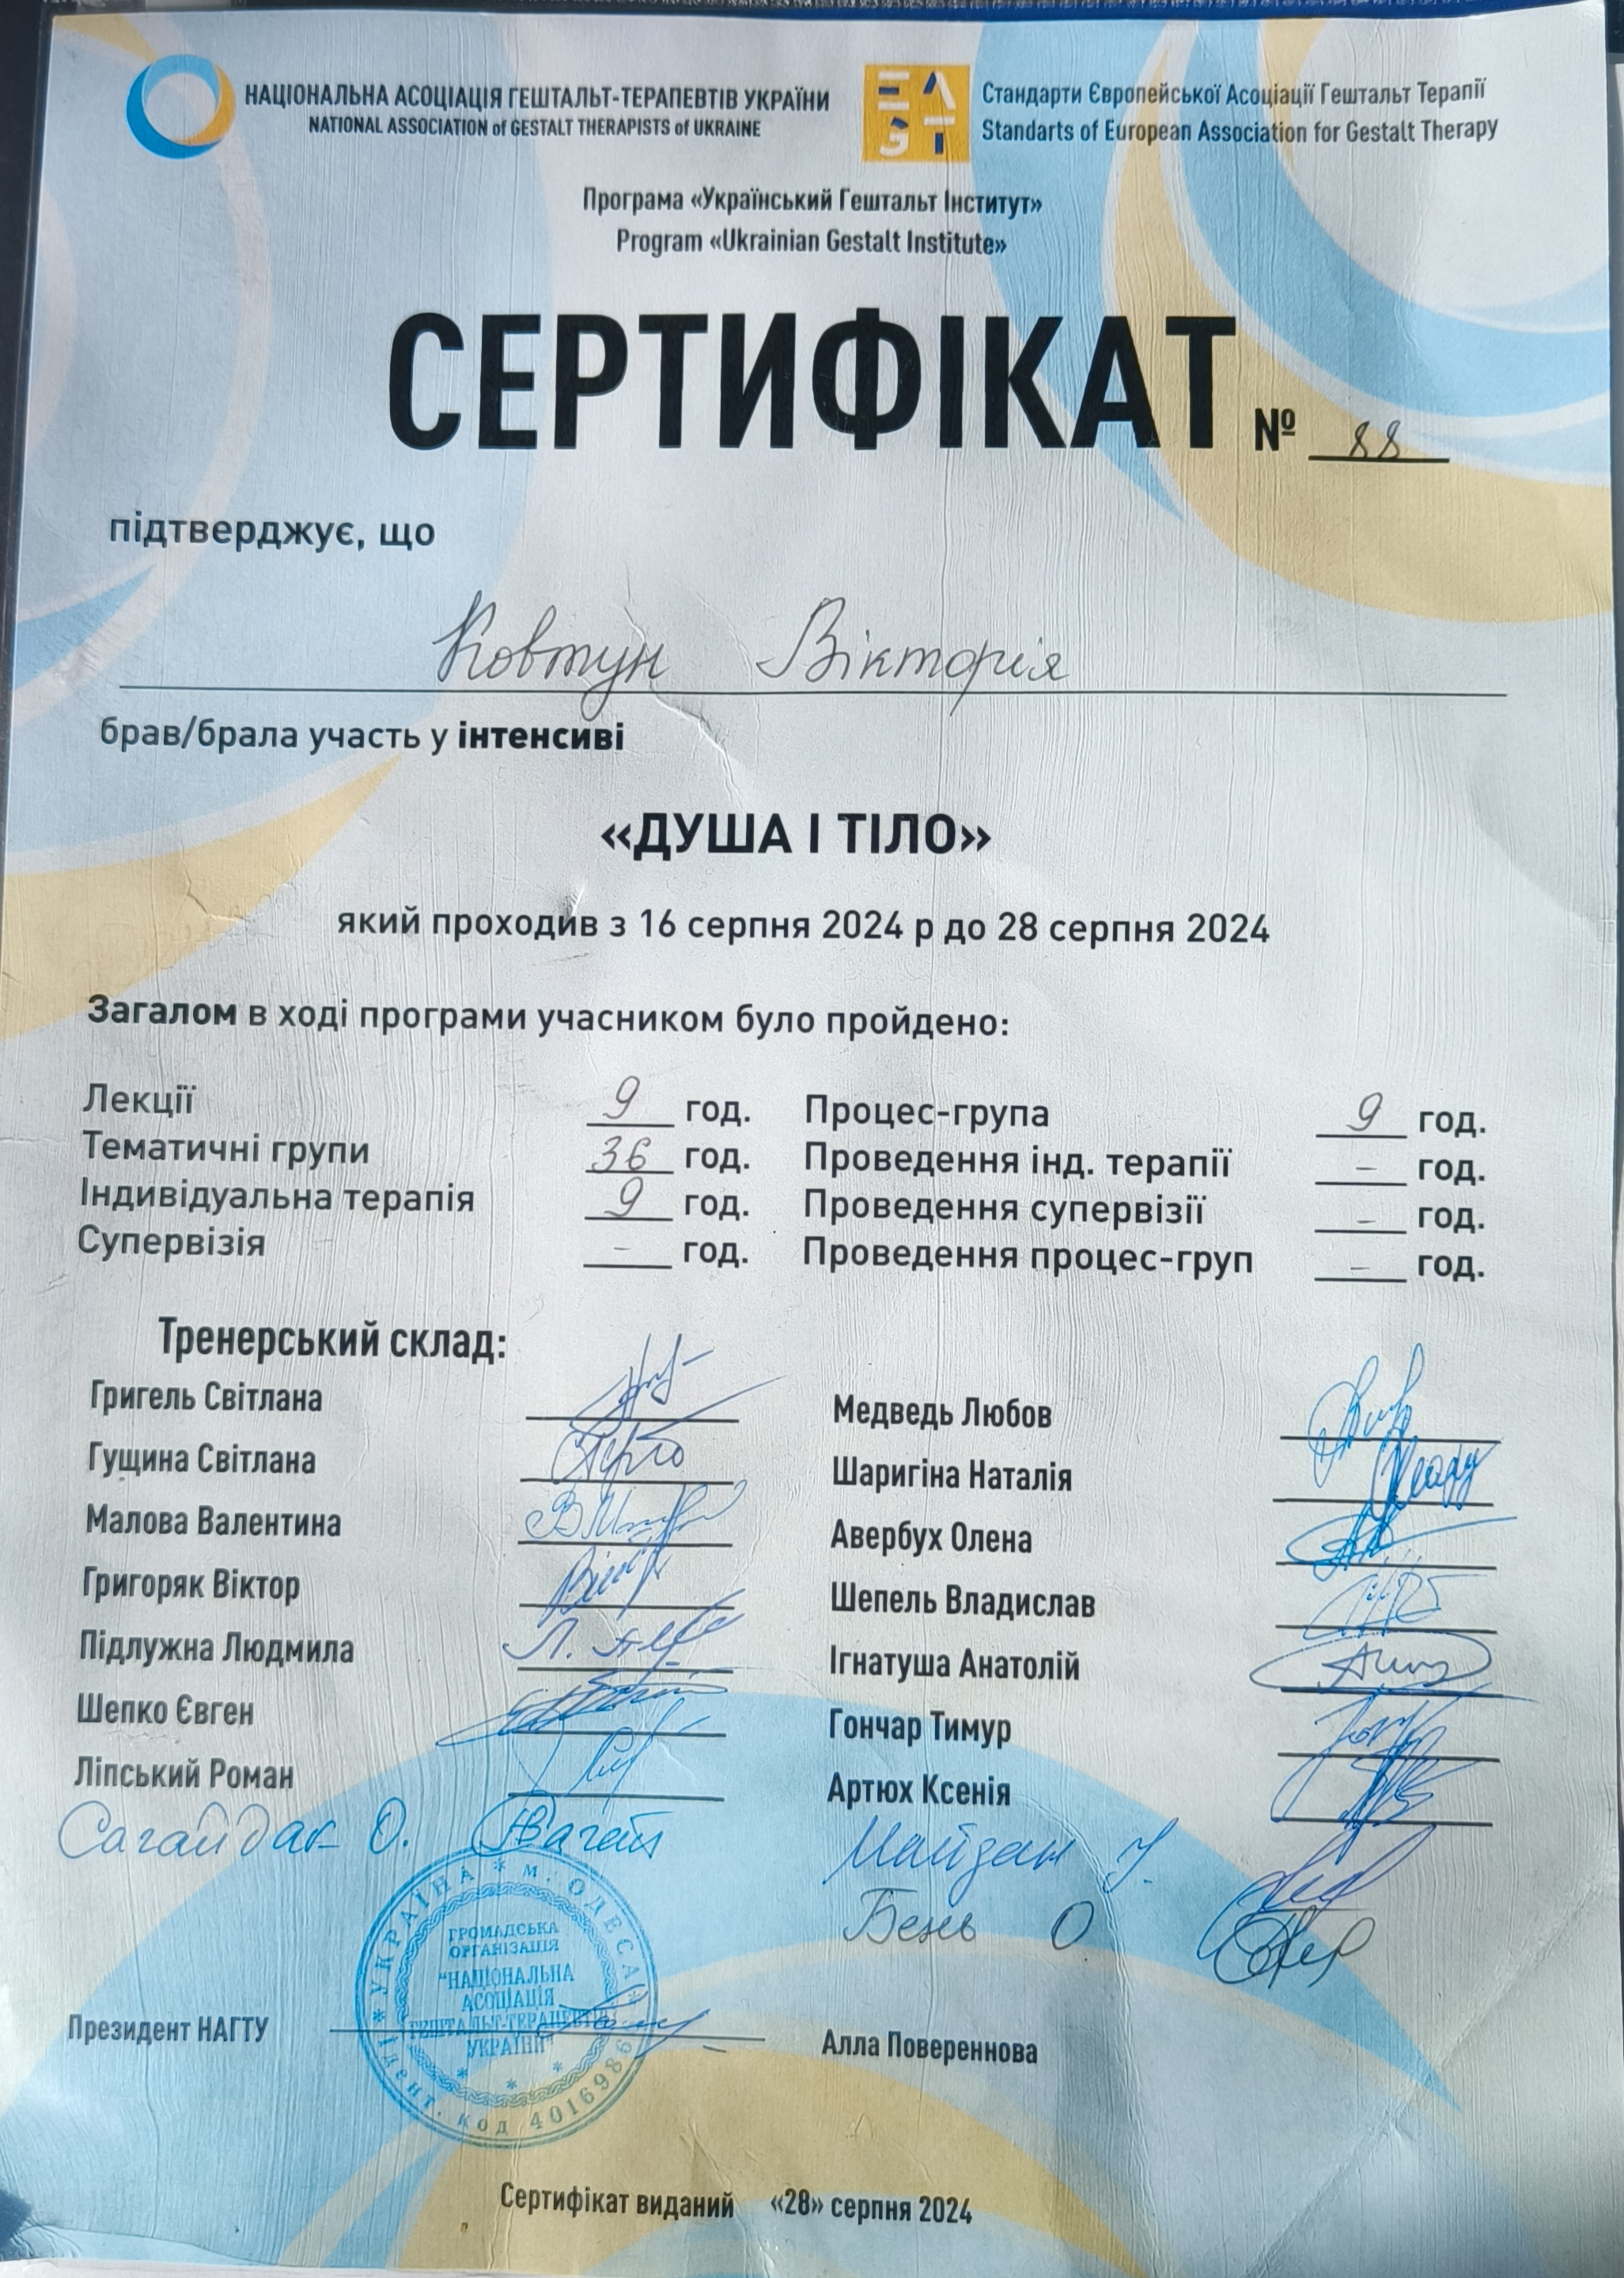 НАЦІОНАЛЬНА АСОЦІАЦІЯ ГЕШТАЛЬТ-ТЕРАПЕВТІВ УКРАЇНИ
NATIONAL ASSOCIATION of GESTALT THERAPISTS of UKRAINE
EAGT
Стандарти Європейської Асоціації Гештальт Терапії
Standarts of European Association for Gestalt Therapy
Програма «Український Гештальт Інститут»
Program «Ukrainian Gestalt Institute»
СЕРТИФІКАТ № 88
підтверджує, що
Ковтун Вікторія
брав/брала участь у інтенсиві
«ДУША І ТІЛО»
який проходив з 16 серпня 2024 р до 28 серпня 2024
Загалом в ході програми учасником було пройдено:
Лекції 9 год. Процес-група 9 год.
Тематичні групи 36 год. Проведення інд. терапії – год.
Індивідуальна терапія 9 год. Проведення супервізії – год.
Супервізія – год. Проведення процес-груп – год.
Тренерський склад:
Григель Світлана Медведь Любов
Гущина Світлана Шаригіна Наталія
Малова Валентина Авербух Олена
Григоряк Віктор Шепель Владислав
Підлужна Людмила Ігнатуша Анатолій
Шепко Євген Гончар Тимур
Ліпський Роман Артюх Ксенія
Сагайдак О. Майдан У.
Бень О
УКРАЇНА * м. ОДЕСА
ГРОМАДСЬКА
ОРГАНІЗАЦІЯ
"НАЦІОНАЛЬНА
АСОЦІАЦІЯ
ГЕШТАЛЬТ-ТЕРАПЕВТІВ
УКРАЇНИ"
Ідент. код 4016986
Президент НАГТУ Алла Повереннова
Сертифікат виданий «28» серпня 2024